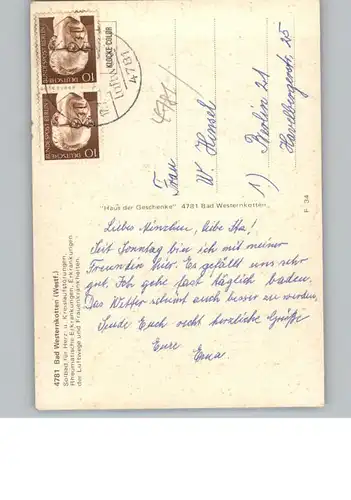 DEUTSCHE BUNDESPOST BERLIN 10
DEUTSCHE BUNDESPOST BERLIN 10
4781
KLOCKE-COLOR
4781
Frau
W. Hensel
1) Berlin 21
Havelbergerstr. 25
"Haus der Geschenke" 4781 Bad Westernkotten
F 34
4781 Bad Westernkotten (Westf.)
Solbad für Herz- u. Kreislaufstörungen,
Rheumatische Erkrankungen, Erkrankungen
der Luftwege und Frauenkrankheiten.
Liebes liebe
Seit Sonntag bin ich mit meiner
Freundin hier. Es gefällt uns sehr
gut. Ich gehe fast täglich baden.
Das Wetter scheint auch besser zu werden,
Sende Euch recht herzliche Grüße
Eure
Erna